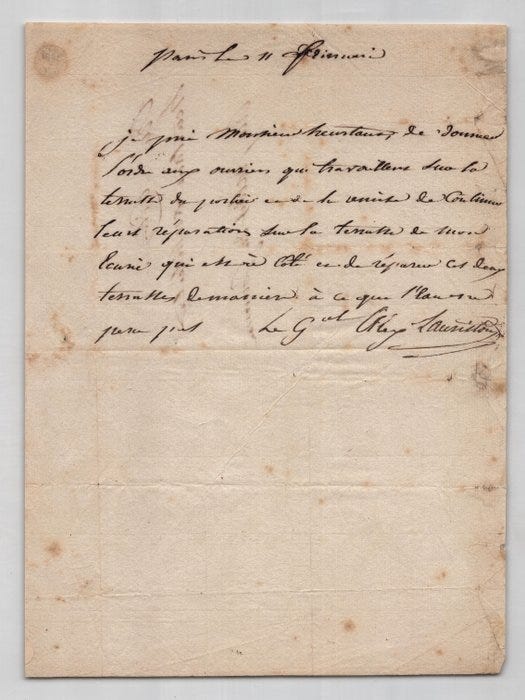 Paris le 11 frimaire
je prie Monsieur heurtaux, de donner
l'ordre aux ouvriers qui travaillent sur la
terrasse du portier et de la remise de continuer
leurs réparations sur la terrasse de mon
Ecurie qui est à côté et de réparer ces deux
terrasses de manière à ce que l'eau ne
perce pas Le Gal Alex Lauriston